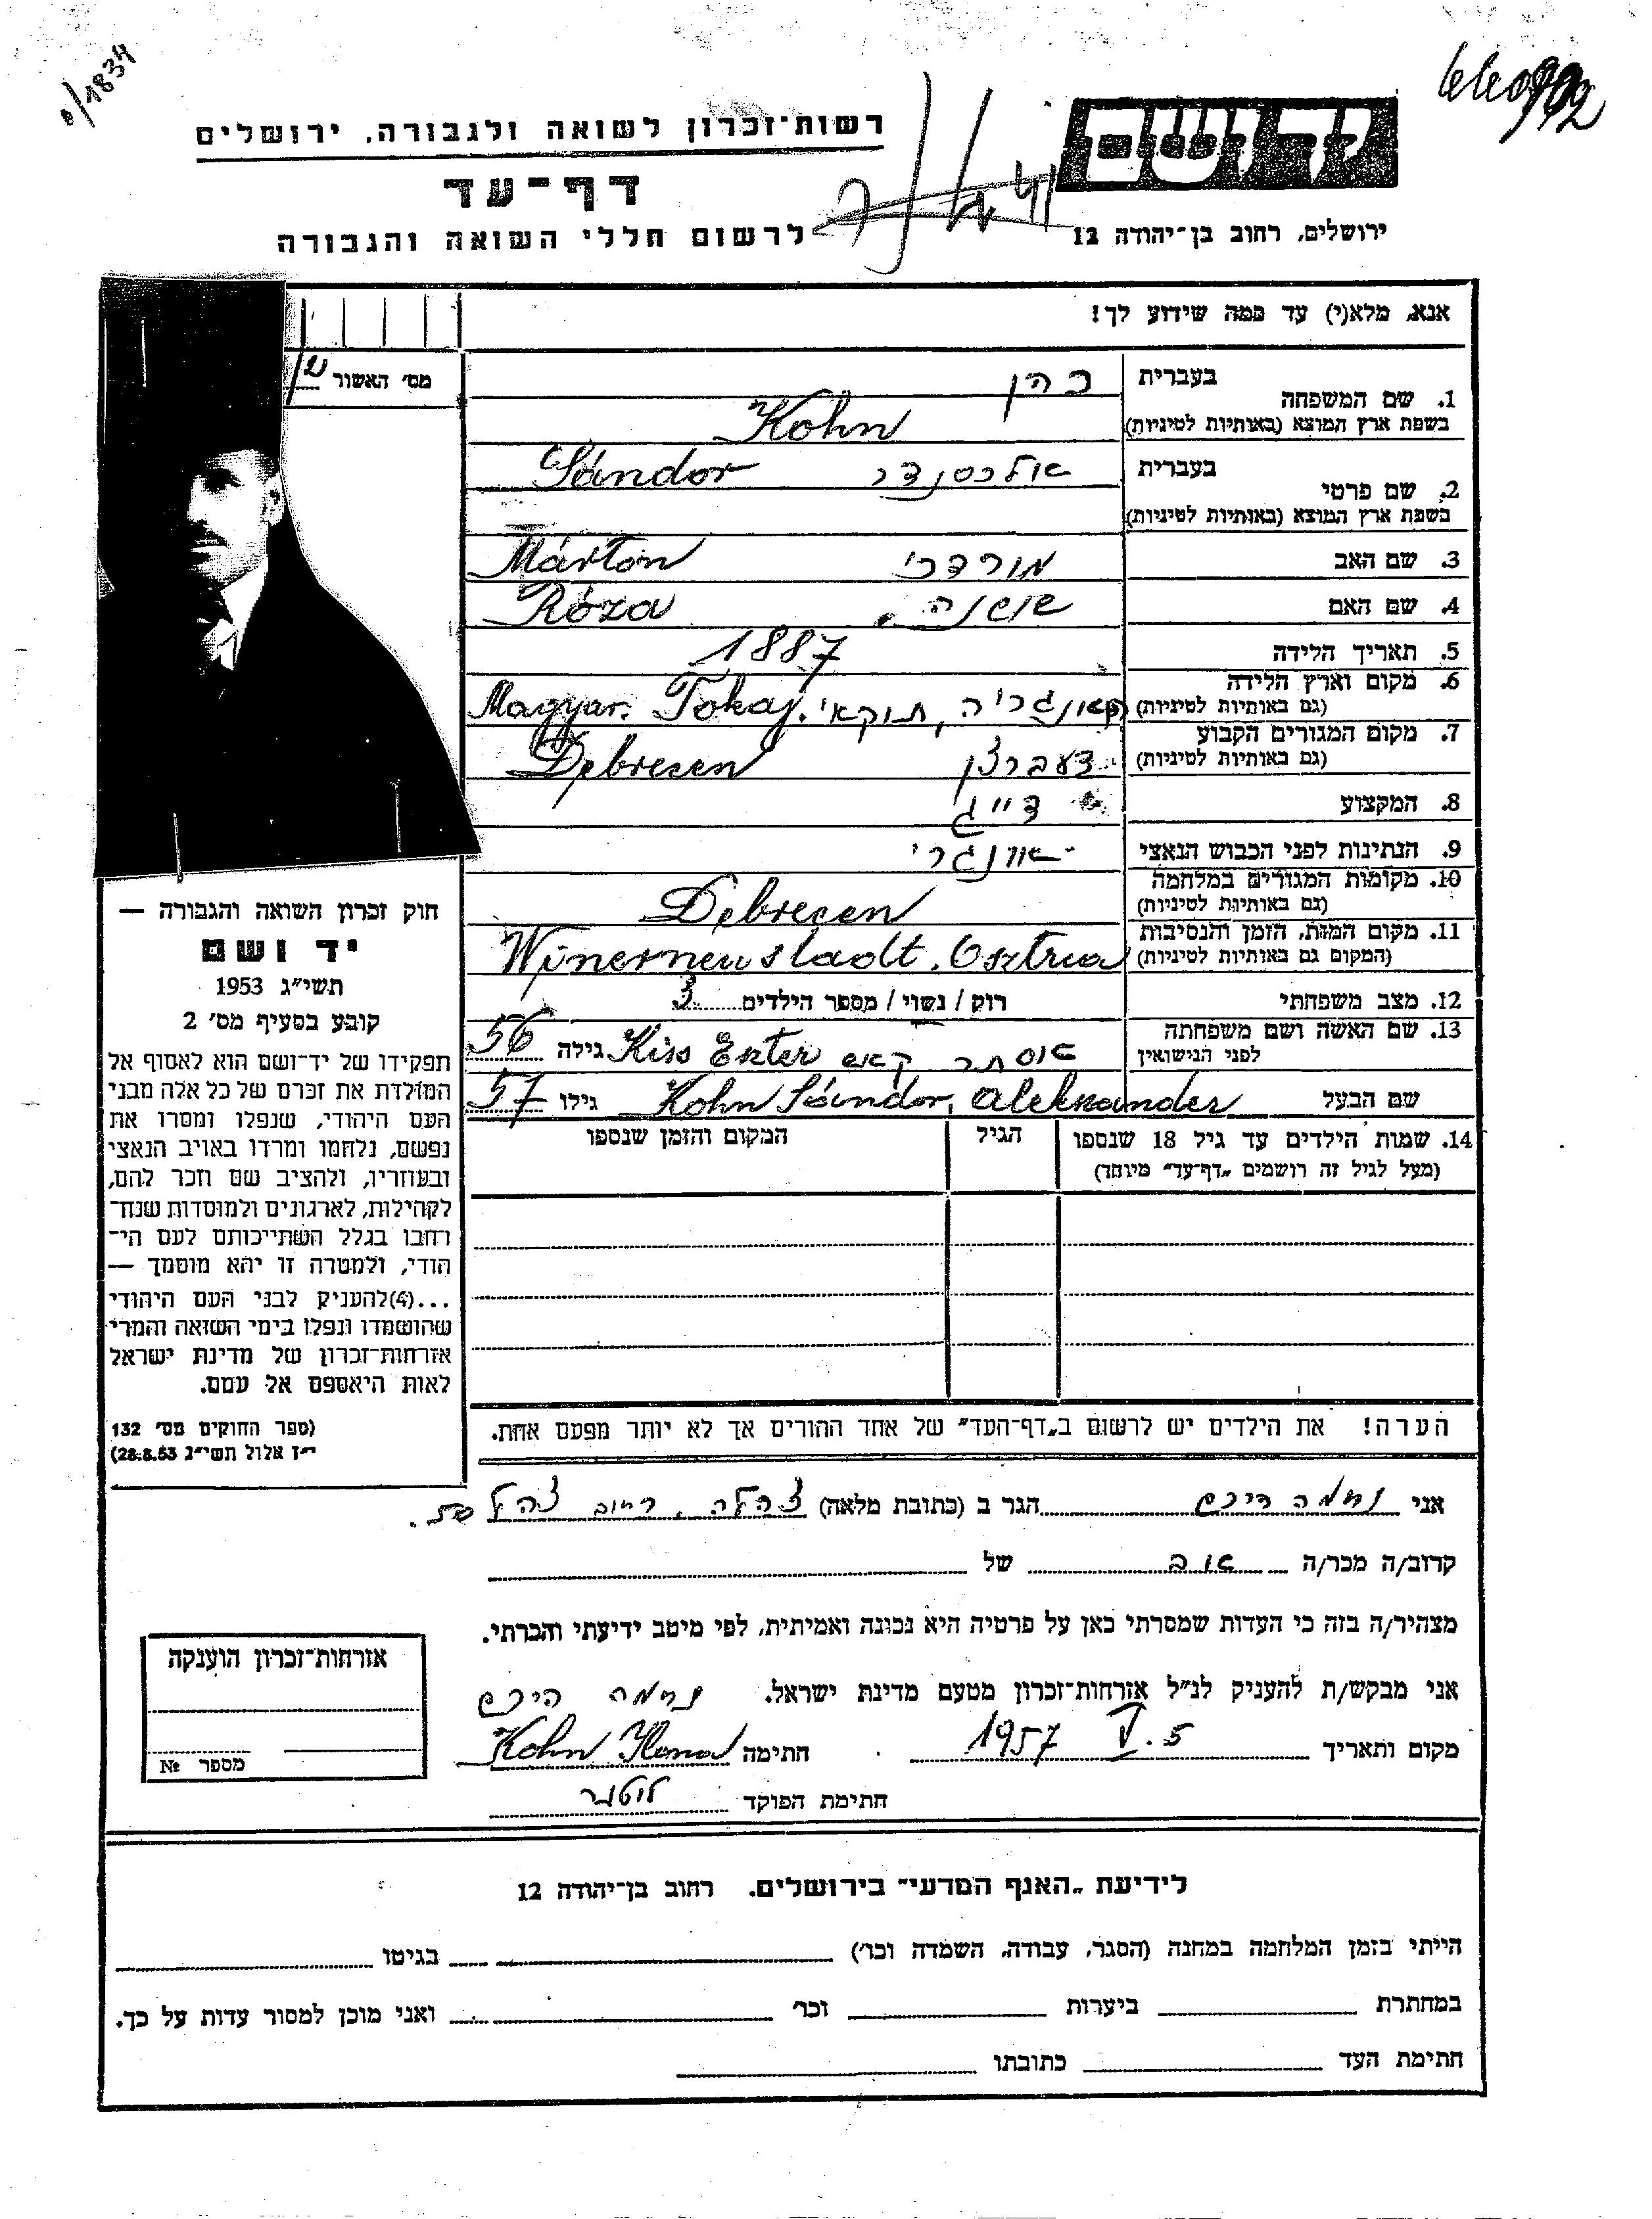 0/1834
רשות־זכרון לשואה ולגבורה, ירושלים
יד ושם
דף־עד
לרשום חללי השואה והגבורה
ירושלים, רחוב בן־יהודה 12
אנא, מלא(י) עד כמה שידוע לך!
מס׳ האשור
1. שם המשפחה
בעברית
כהן
בשפת ארץ המוצא (באותיות לטיניות)
Kohn
2. שם פרטי
בעברית
אלכסנדר
Sándor
בשפת ארץ המוצא (באותיות לטיניות)
3. שם האב
מורדכי
Márton
4. שם האם
שושנה
Róza
5. תאריך הלידה
1887
6. מקום וארץ הלידה
(גם באותיות לטיניות)
אונגריה, תוקאי. Magyar. Tokaj.
7. מקום המגורים הקבוע
(גם באותיות לטיניות)
דעברצן
Debrecen
8. המקצוע
דייג
9. הנתינות לפני הכבוש הנאצי
אונגרי
10. מקומות המגורים במלחמה
(גם באותיות לטיניות)
Debrecen
11. מקום המות, הזמן והנסיבות
(המקום גם באותיות לטיניות)
Winerneustadt. Osztria
12. מצב משפחתי
רוק / נשוי / מספר הילדים 3
13. שם האשה ושם משפחתה
לפני הנישואין
אסתר קאש Kiss Eszter גילה 56
שם הבעל
Kohn Sándor, Aleksander גילו 57
14. שמות הילדים עד גיל 18 שנספו
(מעל לגיל זה רושמים „דף־עד״ מיוחד)
הגיל
המקום והזמן שנספו
הערה! את הילדים יש לרשום ב„דף־העד״ של אחד ההורים אך לא יותר מפעם אחת.
חוק זכרון השואה והגבורה —
יד ושם
תשי״ג 1953
קובע בסעיף מס׳ 2
תפקידו של יד־ושם הוא לאסוף אל
המולדת את זכרם של כל אלה מבני
העם היהודי, שנפלו ומסרו את
נפשם, נלחמו ומרדו באויב הנאצי
ובעוזריו, ולהציב שם וזכר להם,
לקהילות, לארגונים ולמוסדות שנח־
רחבו בגלל השתייכותם לעם הי־
הודי, ולמטרה זו יהא מוסמך —
...(4)להעניק לבני העם היהודי
שהושמדו ונפלו בימי השואה והמרי
אזרחות־זכרון של מדינת ישראל
לאות היאספם אל עמם.
(ספר החוקים מס׳ 132
י״ז אלול תשי״ג 28.8.53)
אני נחמה הירש הגר ב (כתובת מלאה) צהלה, רחוב צהל
קרוב/ה מכר/ה אב של
מצהיר/ה בזה כי העדות שמסרתי כאן על פרטיה היא נכונה ואמיתית, לפי מיטב ידיעתי והכרתי.
אני מבקש/ת להעניק לנ״ל אזרחות־זכרון מטעם מדינת ישראל. נחמה הירש
מקום ותאריך 5. V. 1957 חתימה Kohn Ilona
חתימת הפוקד
אזרחות־זכרון הוענקה
מספר №
לידיעת „האגף המדעי״ בירושלים. רחוב בן־יהודה 12
הייתי בזמן המלחמה במחנה (הסגר, עבודה, השמדה וכו׳) בגיטו
במחתרת ביערות וכו׳ ואני מוכן למסור עדות על כך.
חתימת העד כתובתו